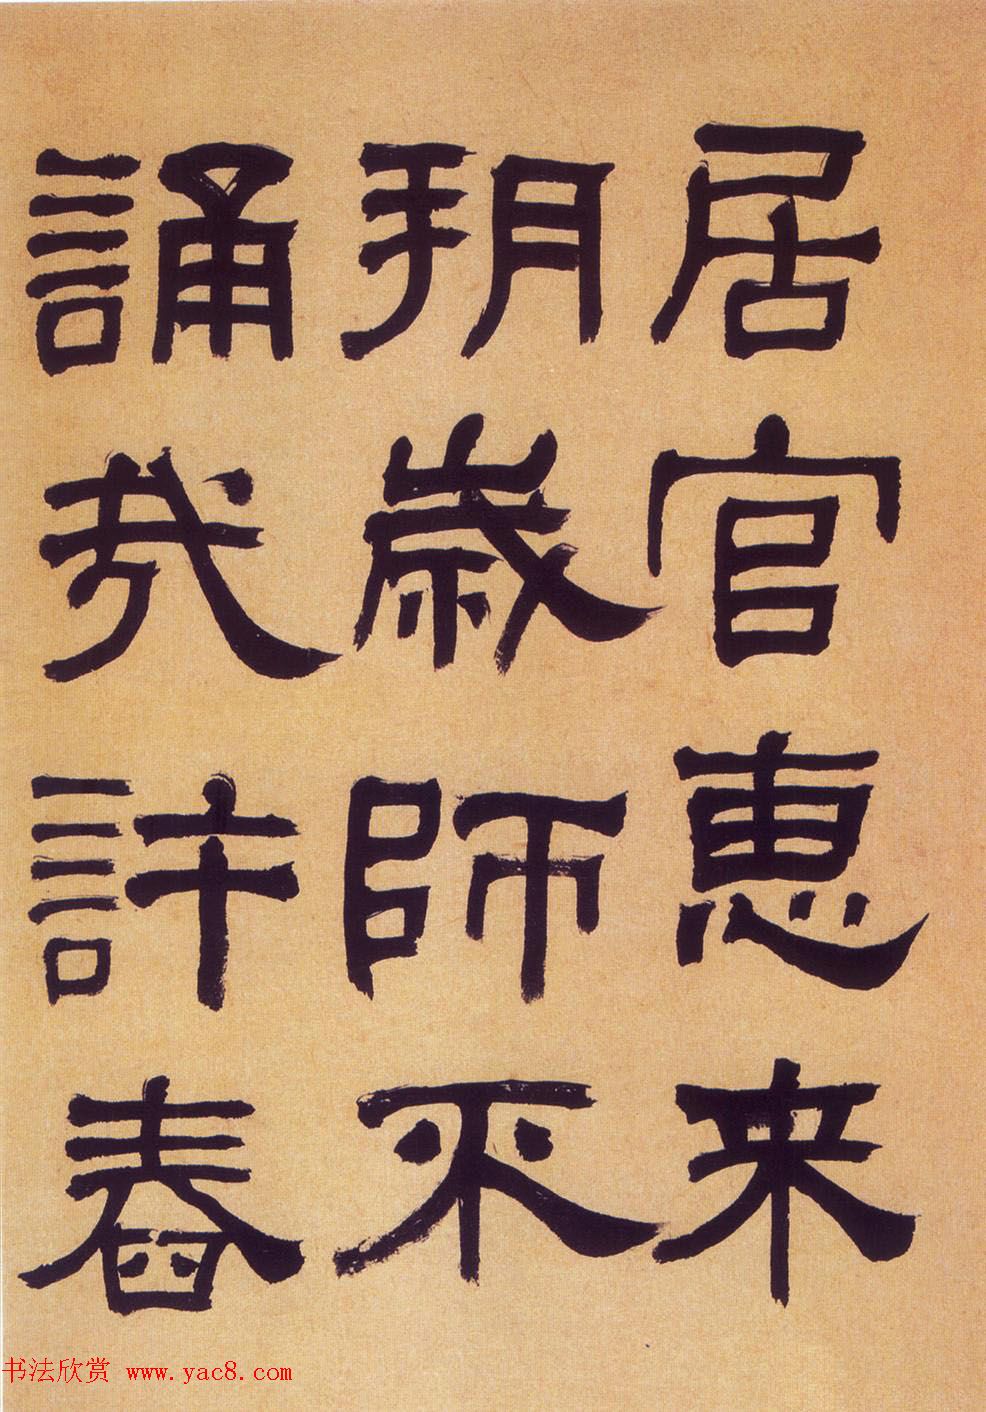 居官惠来
朔歲師不
誦我許舂
书法欣赏 www.yac8.com